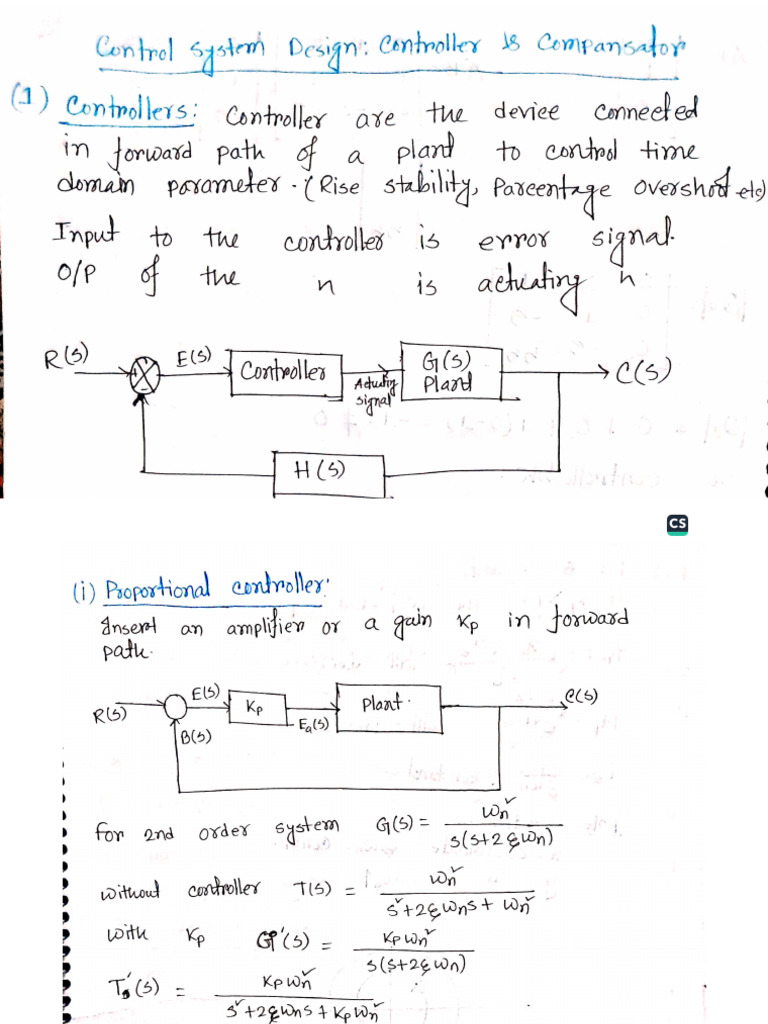 Control system Design: Controller & Compansator
(1) Controllers: Controller are the device connected
in forward path of a plant to control time
domain parameter. (Rise stability, Parcentage overshoot etc)
Input to the controller is error signal.
O/P of the 〃 is actuating 〃.
R(s) E(s) Controller Actuating signal G(s) Plant C(s)
H(s)
CS
(i) Proportional controller:
Insert an amplifier or a gain Kp in forward
path.
R(s) E(s) Kp Ea(s) Plant. C(s)
B(s)
for 2nd order system G(s) = ωn² / s(s+2ξωn)
without controller T(s) = ωn² / s²+2ξωns+ωn²
with Kp G'(s) = Kpωn² / s(s+2ξωn)
T'(s) = Kpωn² / s²+2ξωns+Kpωn²